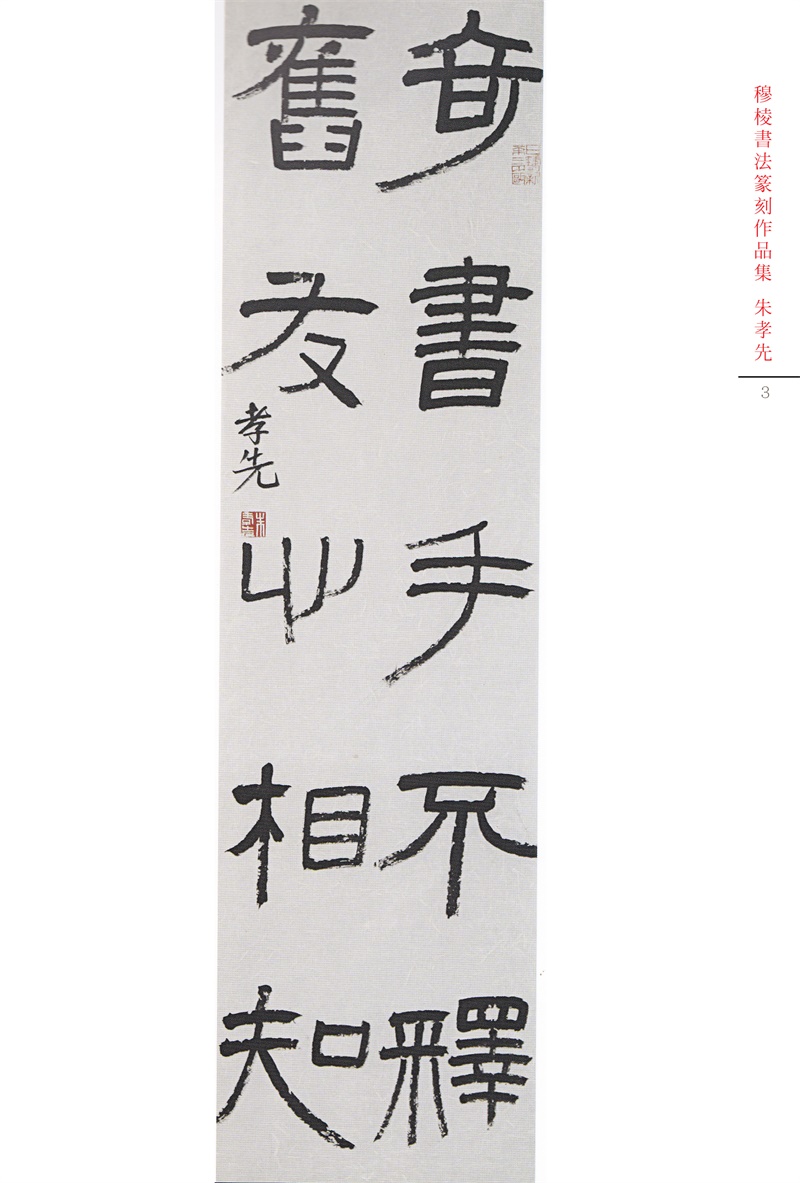 奇書手不釋
舊友心相知
孝先
穆棱書法篆刻作品集 朱孝先
3